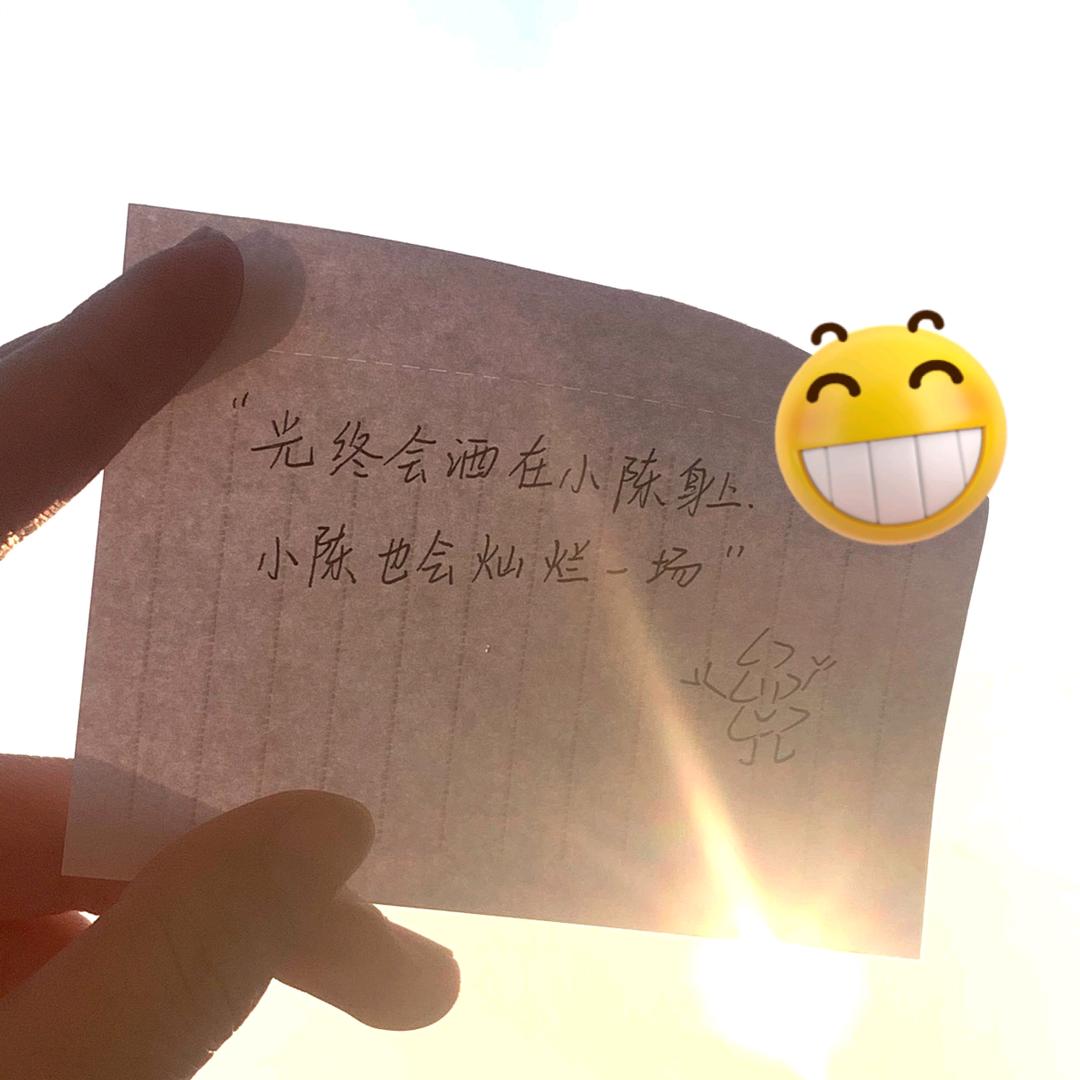 “光终会洒在小陈身上.
小陈也会灿烂一场”